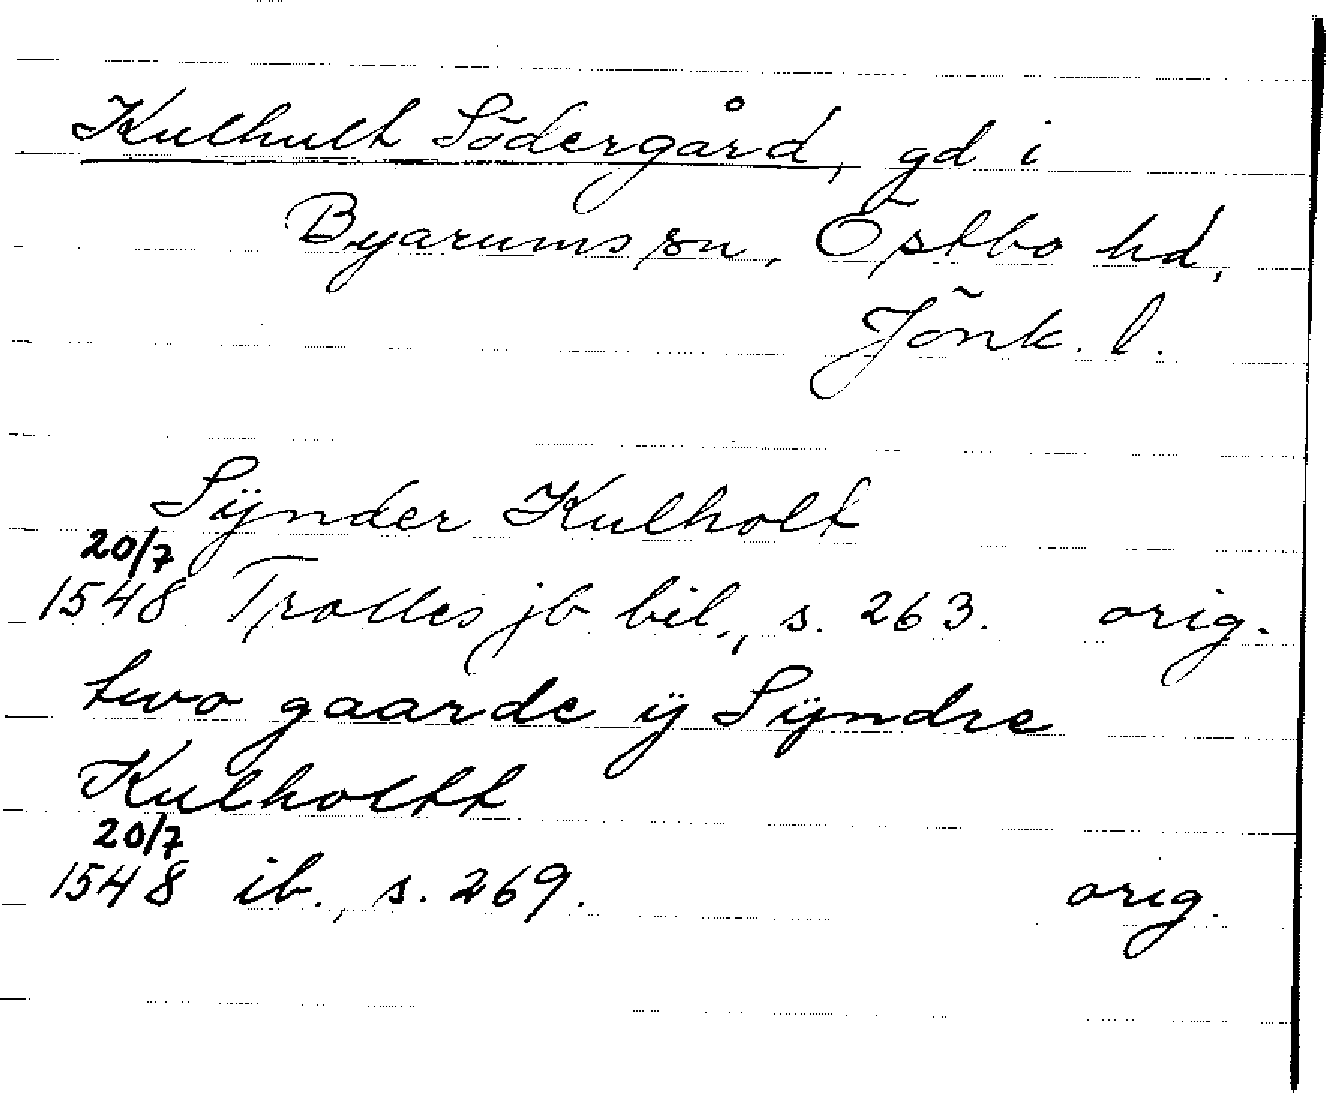 Kulhult Södergård, gd i
Byarums sn, Östbo hd,
Jönk. l.
Sÿnder Kulholt
20/7
1548 Trolles jb bil., s. 263. orig.
two gaarde ÿ Sÿndre
Kulholtt
20/7
1548 ib., s. 269. orig.